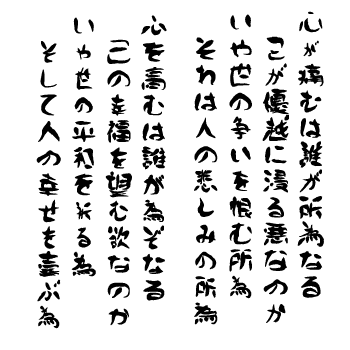 心が痛むは誰が所為なる
こが優越に浸る悪なのか
いや世の争いを恨む所為
それは人の悲しみの所為
心を高むは誰が為ぞなる
この幸福を望む欲なのか
いや世の平和を祈る為
そして人の幸せを喜ぶ為